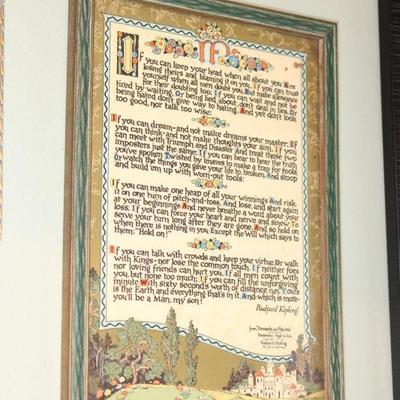 If
If you can keep your head when all about you Are
losing theirs and blaming it on you, If you can trust
yourself when all men doubt you, But make allowance
for their doubting too; If you can wait and not be
tired by waiting, Or being lied about, don't deal in lies, Or
being hated don't give way to hating, And yet don't look
too good, nor talk too wise:
If you can dream-and not make dreams your master; If
you can think-and not make thoughts your aim, If you
can meet with Triumph and Disaster And treat those two
imposters just the same; If you can bear to hear the truth
you've spoken Twisted by knaves to make a trap for fools,
Or watch the things you gave your life to, broken, And stoop
and build 'em up with worn-out tools:
If you can make one heap of all your winnings And risk
it on one turn of pitch-and-toss, And lose, and start again
at your beginnings And never breathe a word about your
loss; If you can force your heart and nerve and sinew To
serve your turn long after they are gone, And so hold on
when there is nothing in you Except the Will which says to
them: "Hold on!"
If you can talk with crowds and keep your virtue, Or walk
with Kings-nor lose the common touch, If neither foes
nor loving friends can hurt you, If all men count with
you, but none too much; If you can fill the unforgiving
minute With sixty seconds worth of distance run, Yours
is the Earth and everything that's in it, And-which is more-
you'll be a Man, my son!
Rudyard Kipling
from "Rewards and Fairies"
Doubleday, Page & Co.
Rudyard Kipling